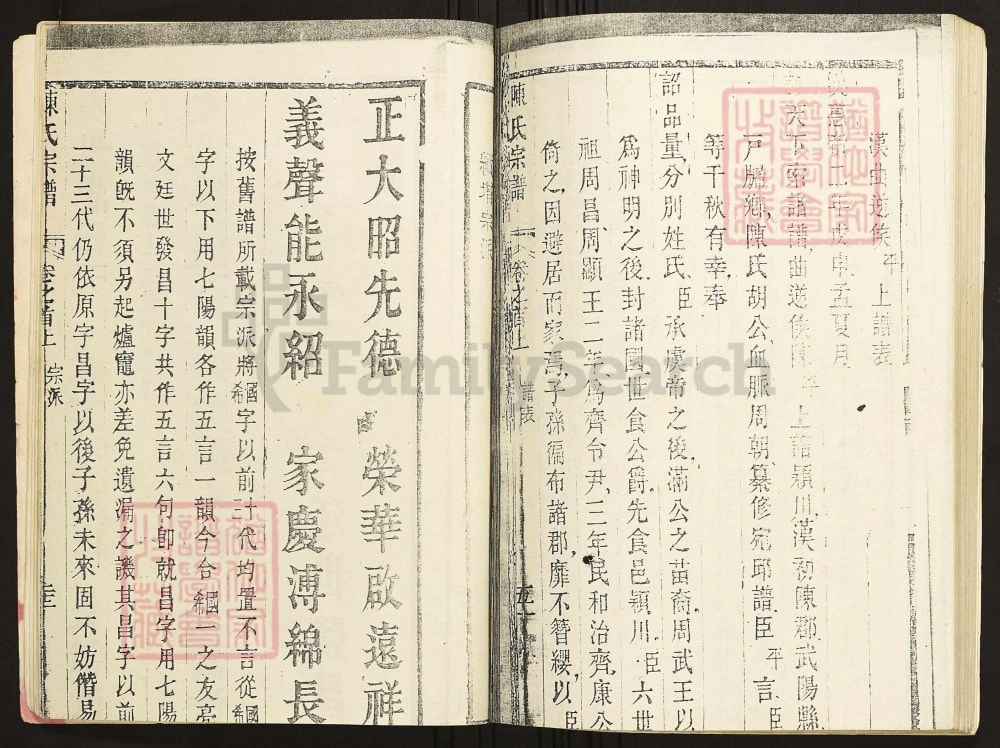 漢曲逆侯平上譜表
年戊申孟夏月
天下索諸譜曲逆侯陳平上諸潁川漢初陳郡武陽縣
戶牖鄉陳氏胡公血脈周朝纂修宛邱譜臣平言臣
等千秋有幸奉
詔品量分別姓氏臣承虞帝之後滿公之苗裔周武王以
爲神明之後封諸國世食公爵先食邑潁川臣六世
祖周昌周顯王二年爲齊令尹三年民和治齊康公
倚之因避居而家焉子孫徧布諸郡靡不簪纓以臣
陳氏宗譜 卷之首上 譜表
正大昭先德 榮華啟遠祥
義聲能永紹 家慶溥綿長
按舊譜所載宗派將國希字以前二十代均置不言從國希
字以下用七陽韻各作五言一韻今合國希一之友亮
文廷世發昌十字共作五言六句卽就昌字用七陽
韻旣不須另起爐竈亦差免遺漏之譏其昌字以前
二十三代仍依原字昌字以後子孫未來固不妨偕易
陳氏宗譜 卷之首上 宗派
FamilySearch